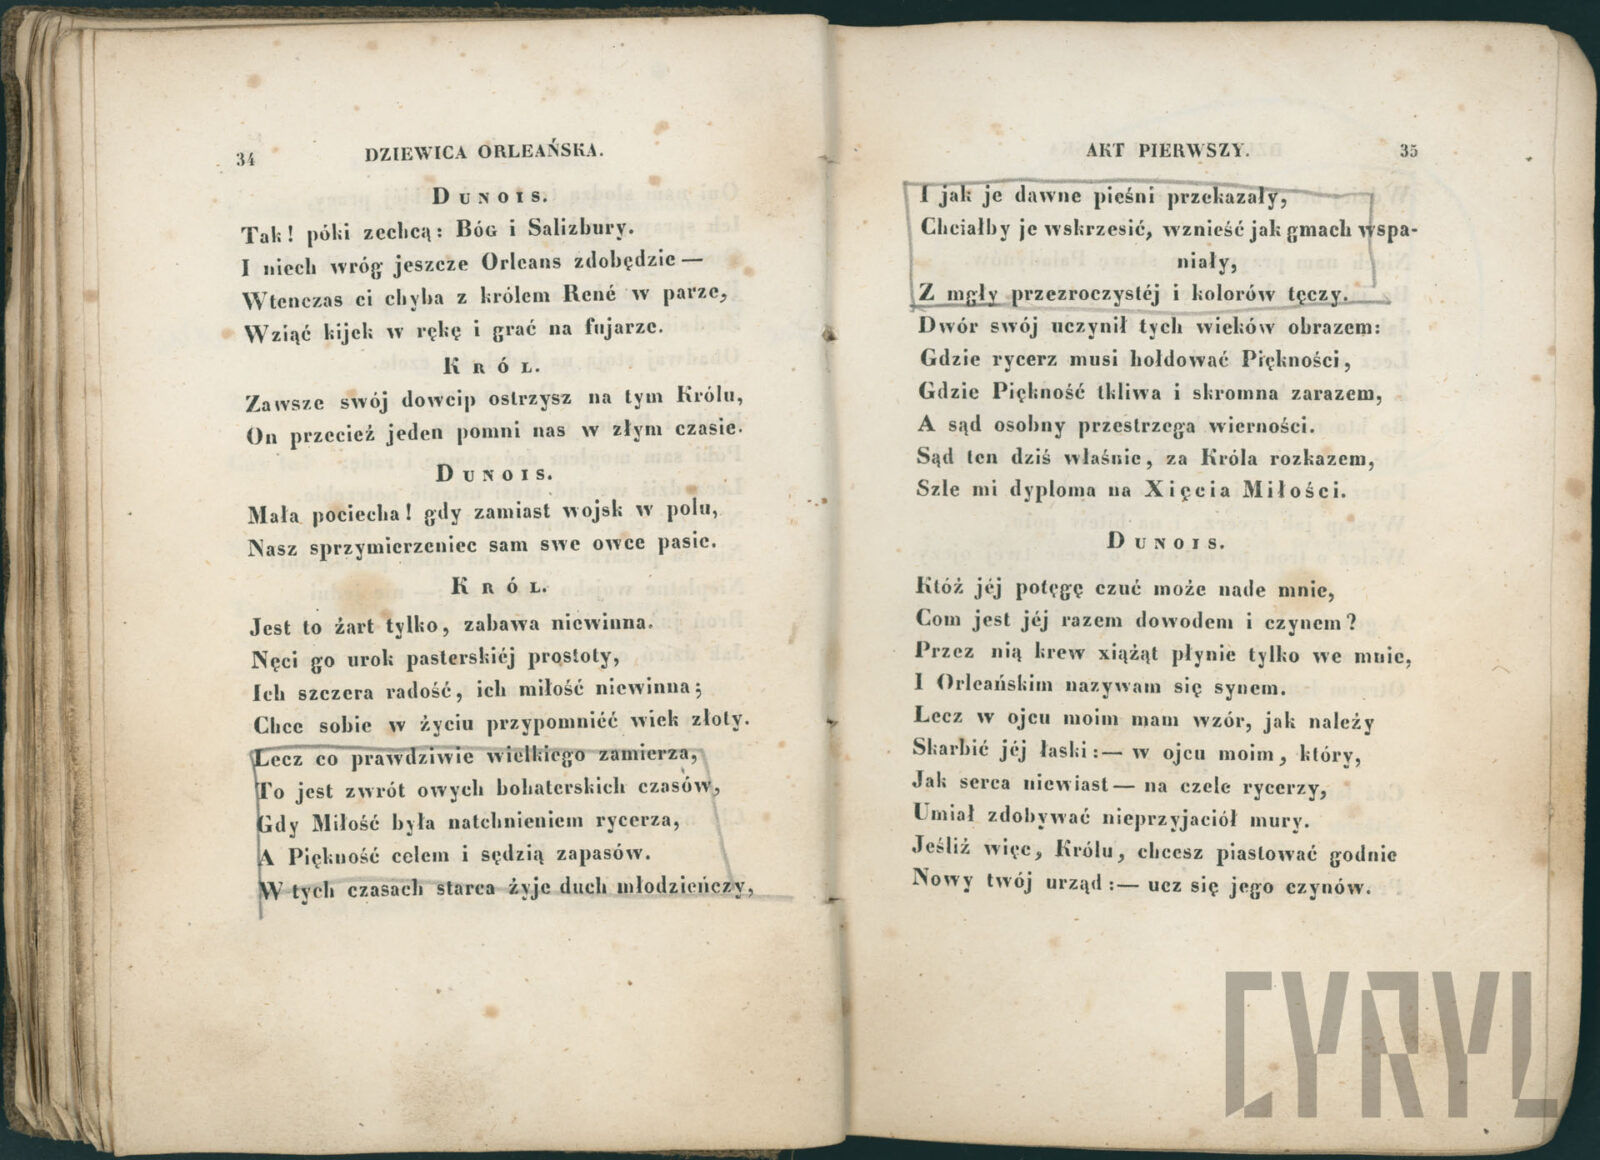 34
DZIEWICA ORLEAŃSKA.
DUNOIS.
Tak! póki zechcą: BÓG i Salizbury.
I niech wróg jeszcze Orleans zdobędzie —
Wtenczas ci chyba z królem René w parze,
Wziąć kijek w rękę i grać na fujarze.
KRÓL.
Zawsze swój dowcip ostrzysz na tym Królu,
On przecież jeden pomni nas w złym czasie.
DUNOIS.
Mała pociecha! gdy zamiast wojsk w polu,
Nasz sprzymierzeniec sam swe owce pasie.
KRÓL.
Jest to żart tylko, zabawa niewinna.
Nęci go urok pasterskiéj prostoty,
Ich szczera radość, ich miłość niewinna;
Chce sobie w życiu przypomniéć wiek złoty.
Lecz co prawdziwie wielkiego zamierza,
To jest zwrót owych bohaterskich czasów,
Gdy Miłość była natchnieniem rycerza,
A Piękność celem i sędzią zapasów.
W tych czasach starca żyje duch młodzieńczy,
AKT PIERWSZY.
35
I jak je dawne pieśni przekazały,
Chciałby je wskrzesić, wznieść jak gmach wspa-
niały,
Z mgły przezroczystéj i kolorów tęczy.
Dwór swój uczynił tych wieków obrazem:
Gdzie rycerz musi hołdować Piękności,
Gdzie Piękność tkliwa i skromna zarazem,
A sąd osobny przestrzega wierności.
Sąd ten dziś właśnie, za Króla rozkazem,
Szle mi dyploma na Xięcia Miłości.
DUNOIS.
Któż jéj potęgę czuć może nade mnie,
Com jest jéj razem dowodem i czynem?
Przez nią krew xiążąt płynie tylko we mnie,
I Orleańskim nazywam się synem.
Lecz w ojcu moim mam wzór, jak należy
Skarbić jéj łaski:— w ojcu moim, który,
Jak serca niewiast— na czele rycerzy,
Umiał zdobywać nieprzyjaciół mury.
Jeśliż więc, Królu, chcesz piastować godnie
Nowy twój urząd:— ucz się jego czynów.
CYRYL